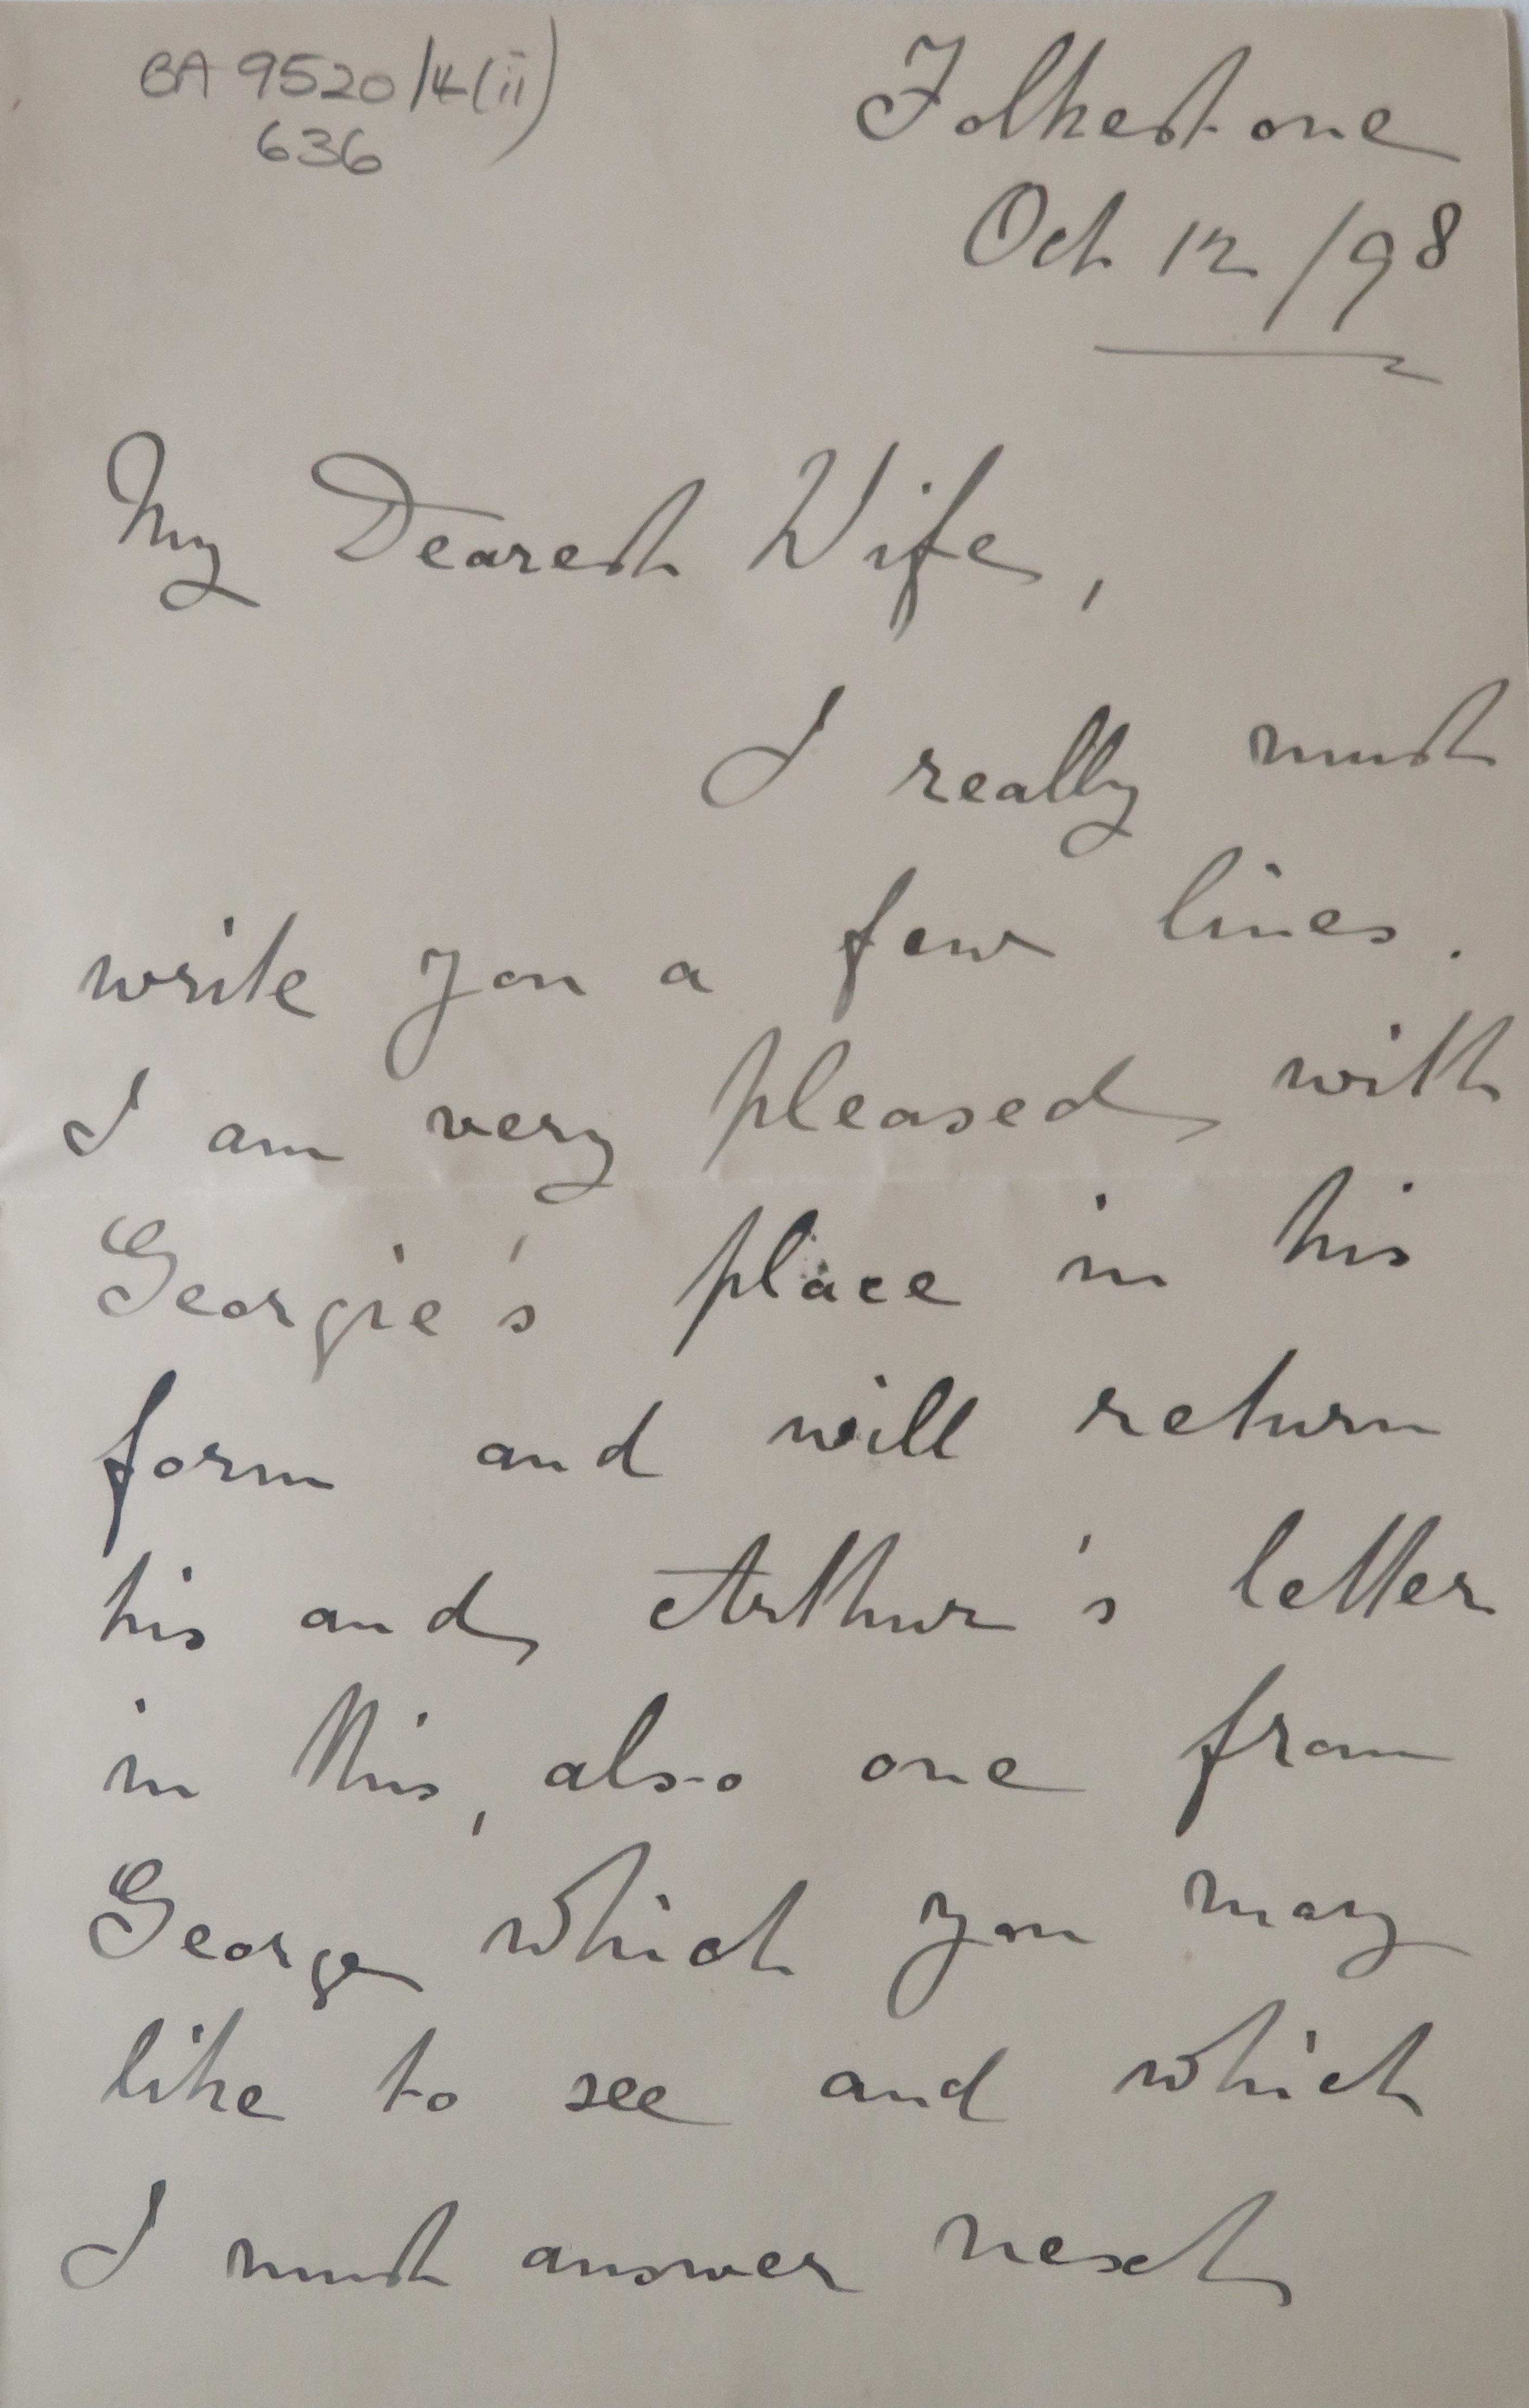 BA 9520/4(ii)
636
Folkestone
Oct 12/98
My Dearest Wife,
I really must
write you a few lines.
I am very pleased with
Georgie's place in his
form and will return
his and Arthur's letter
in this, also one from
George which you may
like to see and which
I must answer next